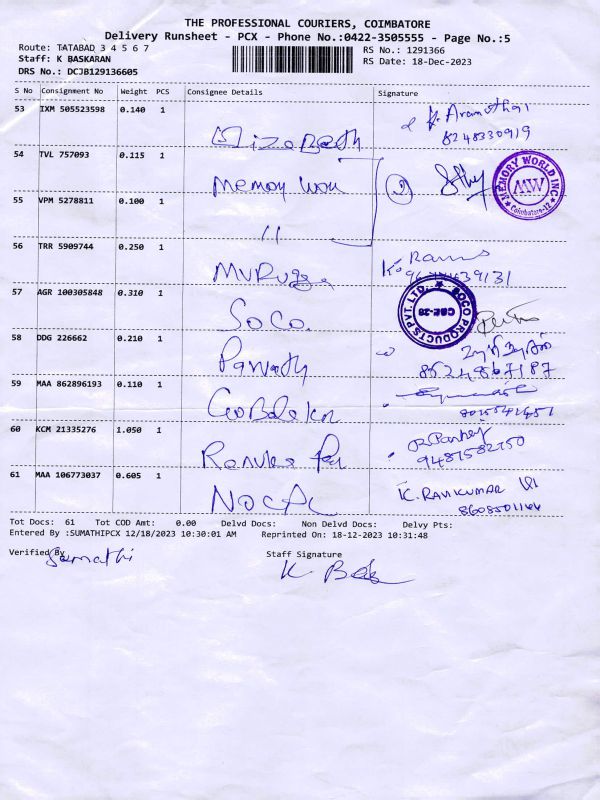 THE PROFESSIONAL COURIERS, COIMBATORE
Delivery Runsheet - PCX - Phone No.:0422-3505555 - Page No.:5
Route: TATABAD 3 4 5 6 7
RS No.: 1291366
Staff: K BASKARAN
RS Date: 18-Dec-2023
DRS No.: DCJB129136605
S No Consignment No Weight PCS Consignee Details Signature
53 IXM 505523598 0.140 1
8248330919
54 TVL 757093 0.115 1
Memory Wou
MEMORY WORLD INC
MW
Coimbatore-12
55 VPM 5278811 0.100 1
"
56 TRR 5909744 0.250 1
K. Ramu
57 AGR 100305848 0.310 1
SOCO
SOCO PRODUCTS PVT. LTD.
CBE-28
58 DDG 226662 0.210 1
Parvathy
8524867187
59 MAA 862896193 0.110 1
60 KCM 21335276 1.050 1
Renuka
9487582750
61 MAA 106773037 0.605 1
K. RAVIKUMAR
Tot Docs: 61 Tot COD Amt: 0.00 Delvd Docs: Non Delvd Docs: Delvy Pts:
Entered By :SUMATHIPCX 12/18/2023 10:30:01 AM Reprinted On: 18-12-2023 10:31:48
Verified By Staff Signature
Sumathi